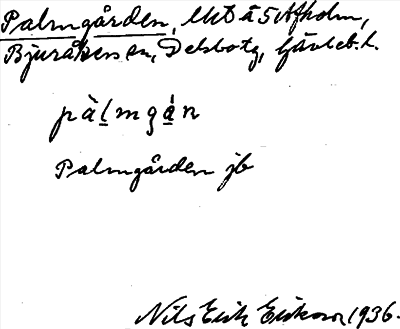 Palmgården, lht å 5 Afholm,
Bjuråkers sn, Delsbo tg, Gävleb. l.
pàlmgån
Palmgården jb
Nils Erik Eriksson 1936.